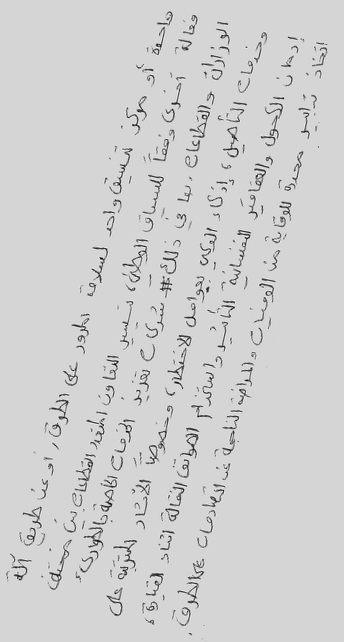 واحدة أو مركز تنسيق واحد لسلامة المرور على الطرق، أو عن طريق آلة
فعالة أخرى وفقاً للسياق الوطني، تيسير التعاون المتعدد القطاعات بين مختلف
الوزارات والقطاعات، بما في ذلك # شركاء تعزيز الخدمات الخاصة بالطوارئ
وخدمات التأهيل؛ إذكاء الوعي بعوامل الاختطار، وخصوصاً الآثار المترتبة على
إدمان الكحول والعقاقير النفسانية التأثير واستخدام الهواتف النقالة أثناء القيادة؛
اتخاذ تدابير محددة للوقاية من الوفيات والمراضة الناجمة عن التصادمات على الطرق،